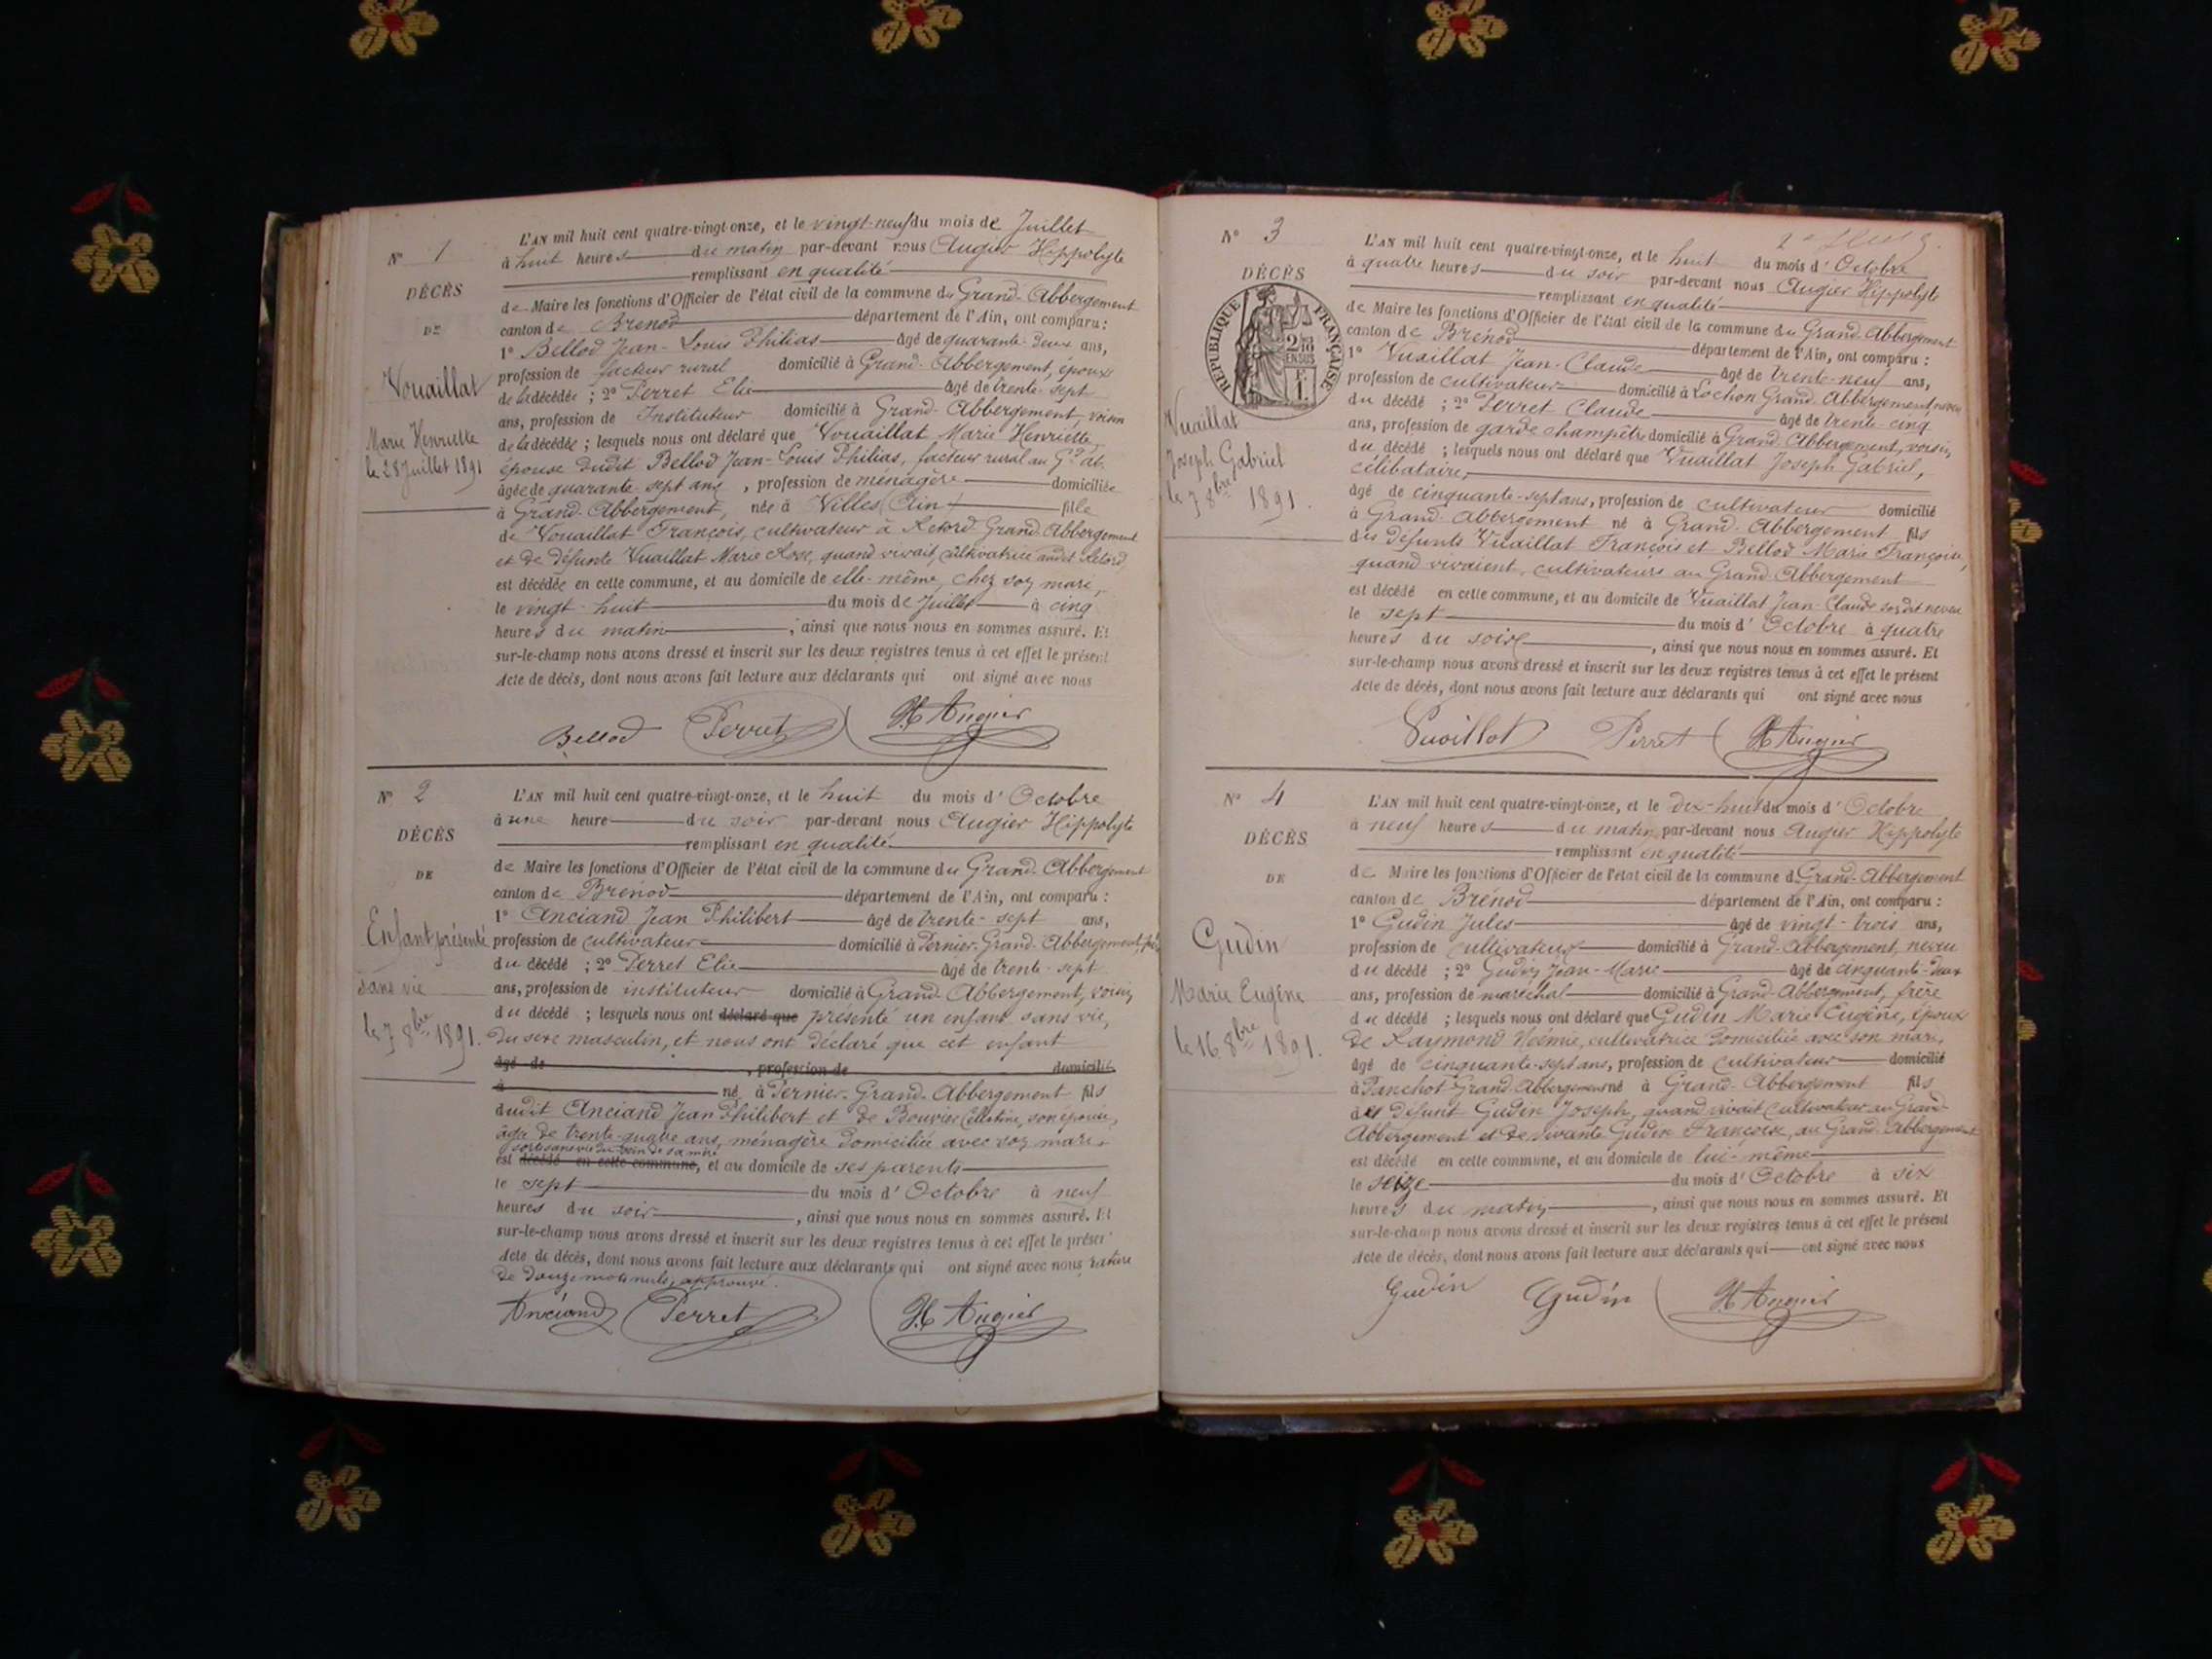 N° 1
DÉCÈS
DE
Vouaillat
Marie Henriette
le 28 Juillet 1891
L'AN mil huit cent quatre-vingt-onze, et le vingt-neuf du mois de Juillet
à huit heures du matin par-devant nous Augier Hippolyte
remplissant en qualité
de Maire les fonctions d'Officier de l'état civil de la commune du Grand-Abbergement
canton de Brenod département de l'Ain, ont comparu :
1° Bellod Jean-Louis Philias âgé de quarante-deux ans,
profession de facteur rural domicilié à Grand-Abbergement, époux
de la décédée ; 2° Perret Elie âgé de trente-sept
ans, profession de Instituteur domicilié à Grand-Abbergement, voisin
de la décédée ; lesquels nous ont déclaré que Vouaillat Marie Henriette,
épouse dudit Bellod Jean-Louis Philias, facteur rural au Gd Ab.
âgée de quarante-sept ans, profession de ménagère domiciliée
à Grand-Abbergement, née à Villes (Ain) fille
de Vouaillat François, cultivateur à Retord Grand-Abbergement
et de défunte Vuaillat Marie Rose, quand vivait, cultivatrice audit Retord,
est décédée en cette commune, et au domicile de elle-même, chez son mari,
le vingt-huit du mois de Juillet à cinq
heures du matin, ainsi que nous nous en sommes assuré. Et
sur-le-champ nous avons dressé et inscrit sur les deux registres tenus à cet effet le présent
Acte de décès, dont nous avons fait lecture aux déclarants qui ont signé avec nous
Bellod Perret H Augier
N° 2
DÉCÈS
DE
Enfant présenté
sans vie
le 7 8bre 1891.
L'AN mil huit cent quatre-vingt-onze, et le huit du mois d'Octobre
à une heure du soir par-devant nous Augier Hippolyte
remplissant en qualité
de Maire les fonctions d'Officier de l'état civil de la commune du Grand-Abbergement
canton de Brénod département de l'Ain, ont comparu :
1° Anciand Jean Philibert âgé de trente-sept ans,
profession de cultivateur domicilié à Pernier-Grand-Abbergement, père
du décédé ; 2° Perret Elie âgé de trente-sept
ans, profession de instituteur domicilié à Grand-Abbergement, voisin
du décédé ; lesquels nous ont déclaré que présenté un enfant sans vie,
du sexe masculin, et nous ont déclaré que cet enfant
âgé de , profession de domicilié
à né à Pernier-Grand-Abbergement fils
dudit Anciand Jean Philibert et de Bouvier Célestine, son épouse,
âgée de trente-quatre ans, ménagère domiciliée avec son mari,
sorti sans vie du sein de sa mère
est décédé en cette commune, et au domicile de ses parents
le sept du mois d'Octobre à neuf
heures du soir, ainsi que nous nous en sommes assuré. Et
sur-le-champ nous avons dressé et inscrit sur les deux registres tenus à cet effet le présent
Acte de décès, dont nous avons fait lecture aux déclarants qui ont signé avec nous rature
de douze mots nuls, approuvé.
Anciand Perret H Augier
N° 3
DÉCÈS
RÉPUBLIQUE FRANÇAISE
2/10
EN SUS
1 F.
Vuaillat
Joseph Gabriel
le 7 8bre 1891.
L'AN mil huit cent quatre-vingt-onze, et le huit du mois d'Octobre
à quatre heures du soir par-devant nous Augier Hippolyte
remplissant en qualité
de Maire les fonctions d'Officier de l'état civil de la commune du Grand-Abbergement
canton de Brénod département de l'Ain, ont comparu :
1° Vuaillat Jean-Claude âgé de trente-neuf ans,
profession de cultivateur domicilié à Lochon Grand-Abbergement, neveu
du décédé ; 2° Perret Claude âgé de trente-cinq
ans, profession de garde champêtre domicilié à Grand-Abbergement, voisin,
du décédé ; lesquels nous ont déclaré que Vuaillat Joseph Gabriel,
célibataire,
âgé de cinquante-sept ans, profession de cultivateur domicilié
à Grand-Abbergement né à Grand-Abbergement fils
des défunts Vuaillat François et Bellod Marie Françoise,
quand vivaient, cultivateurs au Grand-Abbergement
est décédé en cette commune, et au domicile de Vuaillat Jean-Claude sondit neveu
le sept du mois d'Octobre à quatre
heures du soir, ainsi que nous nous en sommes assuré. Et
sur-le-champ nous avons dressé et inscrit sur les deux registres tenus à cet effet le présent
Acte de décès, dont nous avons fait lecture aux déclarants qui ont signé avec nous
Vuoillot Perret H Augier
N° 4
DÉCÈS
DE
Gudin
Marie Eugène
le 16 8bre 1891.
L'AN mil huit cent quatre-vingt-onze, et le dix-huit du mois d'Octobre
à neuf heures du matin par-devant nous Augier Hippolyte
remplissant en qualité
de Maire les fonctions d'Officier de l'état civil de la commune d. Grand-Abbergement
canton de Brénod département de l'Ain, ont comparu :
1° Gudin Jules âgé de vingt-trois ans,
profession de cultivateur domicilié à Grand-Abbergement, neveu
du décédé ; 2° Gudin Jean-Marie âgé de cinquante-deux
ans, profession de maréchal domicilié à Grand-Abbergement, frère
du décédé ; lesquels nous ont déclaré que Gudin Marie Eugène, époux
de Raymond Noémie, cultivatrice domiciliée avec son mari,
âgé de cinquante-sept ans, profession de cultivateur domicilié
à Panchot Grand-Abbergement né à Grand-Abbergement fils
de défunt Gudin Joseph, quand vivait cultivateur au Grand-
Abbergement et de vivante Gudin Françoise, au Grand-Abbergement
est décédé en cette commune, et au domicile de lui-même
le seize du mois d'Octobre à six
heures du matin, ainsi que nous nous en sommes assuré. Et
sur-le-champ nous avons dressé et inscrit sur les deux registres tenus à cet effet le présent
Acte de décès, dont nous avons fait lecture aux déclarants qui ont signé avec nous
Gudin Gudin H Augier